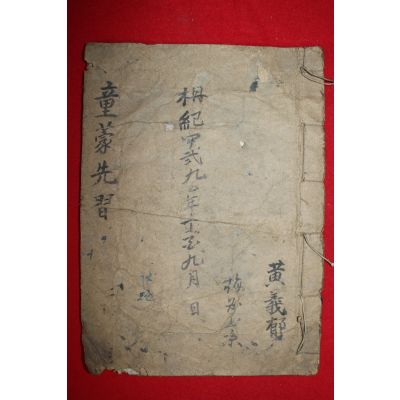 黃義郁
檀紀四弐九〇年丁酉九月 日
童蒙先習